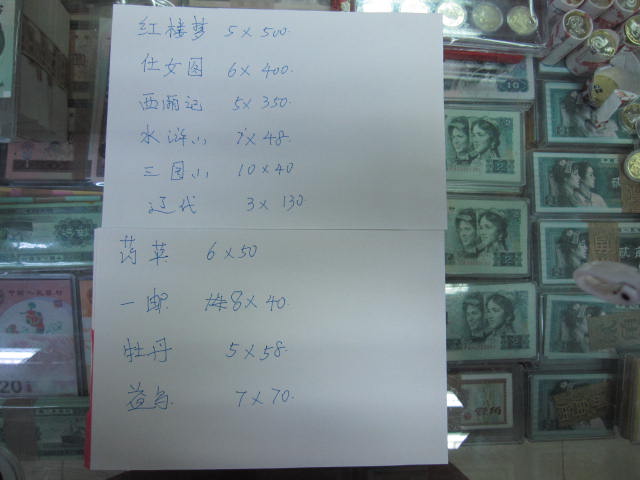 红楼梦 5×500.
仕女图 6×400.
西厢记 5×350.
水浒小 7×48.
三国小 10×40
辽代 3×130.
药草 6×50
一邮 8×40.
牡丹 5×58.
益鸟. 7×70.
20
10
贰角